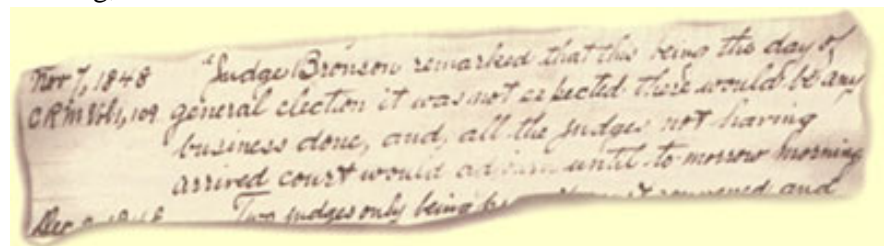 Nov 7, 1848 "Judge Bronson remarked that this being the day of
C.R.M. Vol 1, 109. general election it was not expected there would be any
business done, and, all the judges not having
arrived court would adjourn until to-morrow morning
Two judges only being and